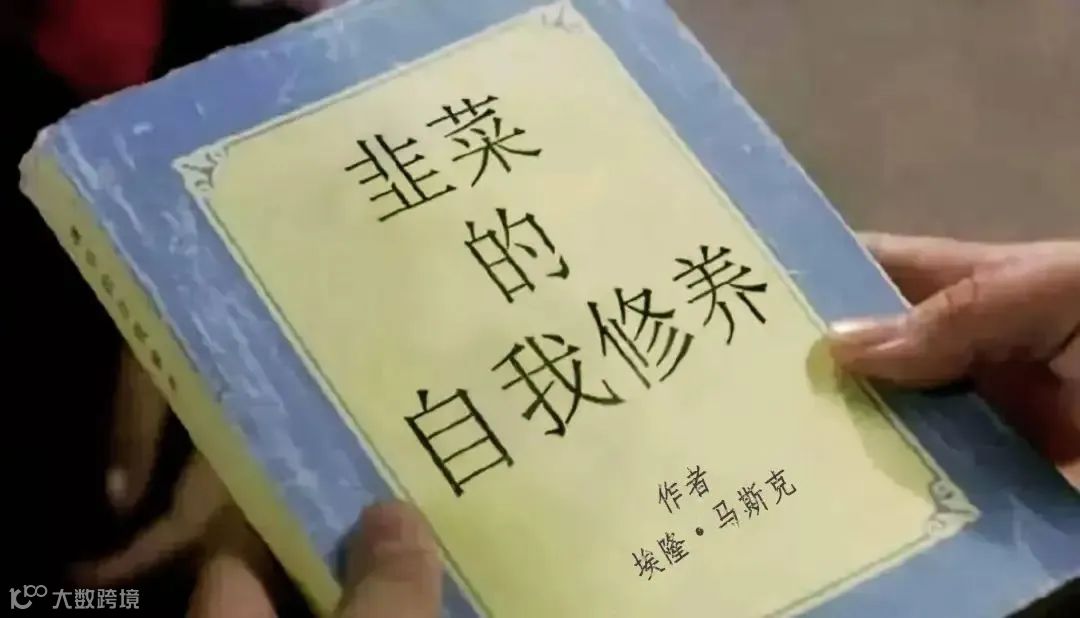 韭菜
的
自我修养
作者
埃隆·马斯克
大数跨境